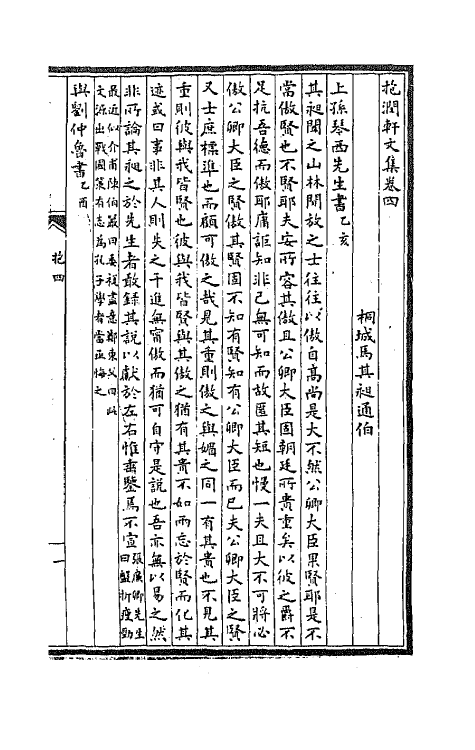 抱潤軒文集卷四
桐城馬其昶通伯
上孫琴西先生書乙亥
其昶聞之山林閒放之士往往以傲自高尚是大不然公卿大臣果賢耶是不
當傲賢也不賢耶夫安所容其傲且公卿大臣固朝廷所貴重矣以彼之爵不
足抗吾德而傲耶庸詎知非己無可知而故匿其短也慢一夫且大不可將必
傲公卿大臣之賢傲其賢固不知有賢知有公卿大臣而已夫公卿大臣之賢
又士庶標準也而顧可傲之哉見其重則傲之與媚之同一有其貴也不見其
重則彼與我皆賢也彼與我皆賢與其傲之猶有其貴不如兩忘於賢而化其
迹或曰事非其人則失之干進無甯傲而猶可自守是說也吾亦無以易之然
非所論其昶之於先生者敢錄其說以獻於左右惟垂鑒焉不宣張廉卿先生曰盤折瘦勁
最近似介甫陳伯嚴曰奏視盡意鄭東父曰此
文源出戰國策有志為孔子學者當亟悔之
與劉仲魯書乙酉
抱四
一